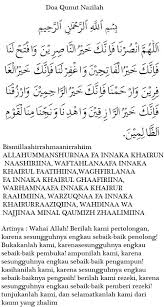 Doa Qunut Nazilah
بِسْمِ اللَّهِ الرَّحْمَنِ الرَّحِيمِ
اَللّٰهُمَّ انْصُرْنَا فَإِنَّكَ خَيْرُ النَّاصِرِيْنَ وَافْتَحْ لَنَا
فَإِنَّكَ خَيْرُ الْفَاتِحِيْنَ وَاغْفِرْ لَنَا فَإِنَّكَ خَيْرُ
الْغَافِرِيْنَ وَارْحَمْنَا فَإِنَّكَ خَيْرُ الرَّاحِمِيْنَ وَارْزُقْنَا
فَإِنَّكَ خَيْرُ الرَّازِقِيْنَ وَاهْدِنَا وَنَجِّنَا مِنَ الْقَوْمِ
الظَّالِمِيْنَ
Bismillaahirrahmaanirrahiim
ALLAHUMMANSHURNAA FA INNAKA KHAIRUN
NAASHIRIINA, WAFTAHLANAAFA INNAKA
KHAIRUL FAATIHIINA,WAGHFIRLANAA
FA INNAKA KHAIRUL GHAAFIRIINA,
WARHAMNAAFA INNAKA KHAIRUR
RAAHIMIINA, WARZUQNAA FA INNAKA
KHAIRURRAAZIQIINA, WAHDINAA WA
NAJJINAA MINAL QAUMIZH ZHAALIMIINA
Artinya : Wahai Allah! Berilah kami pertolongan,
karena sesungguhnya engkau sebaik-baik penolong!
Bukakanlah kami, karenasesungguhnya engkau
sebaik-baik pembuka! ampunilah kami, karena
sesungguhnya engkau sebaik-baik pengampun!
kasihanilah kami, karena sesungguhnya engkau
sebaik-baiknya pengasih! berilah kami rezeki, karena
sesungguhnya engkau sebaik-baik pemberi rezeki!
tunjukanlah kami, dan selamatkanlah kami dari
kaum yang dhalim